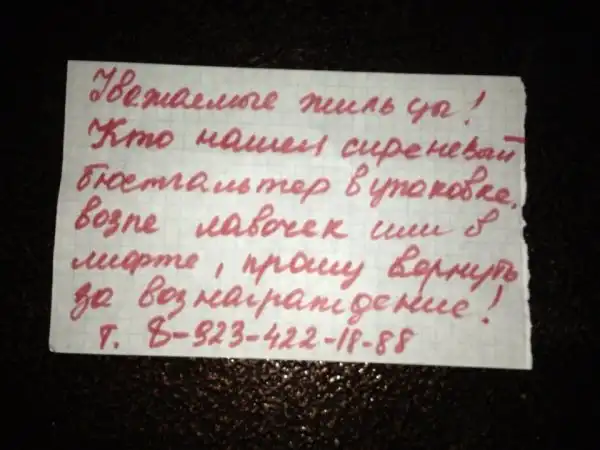 Уважаемые жильцы!
Кто нашел сиреневый
бюстгальтер в упаковке,
возле лавочек или в
лифте, прошу вернуть
за вознаграждение!
т. 8-923-422-18-88